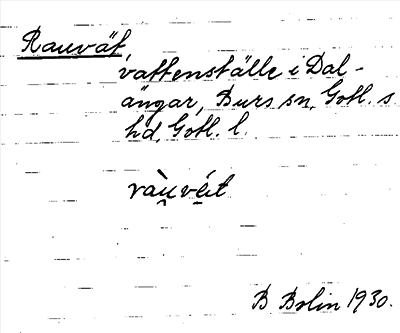 Rauvät,
vattenställe i Dal-
ängar, Burs sn, Gotl. s
hd, Gotl. l.
ràu̯véi̯t
B Bolin 1930.